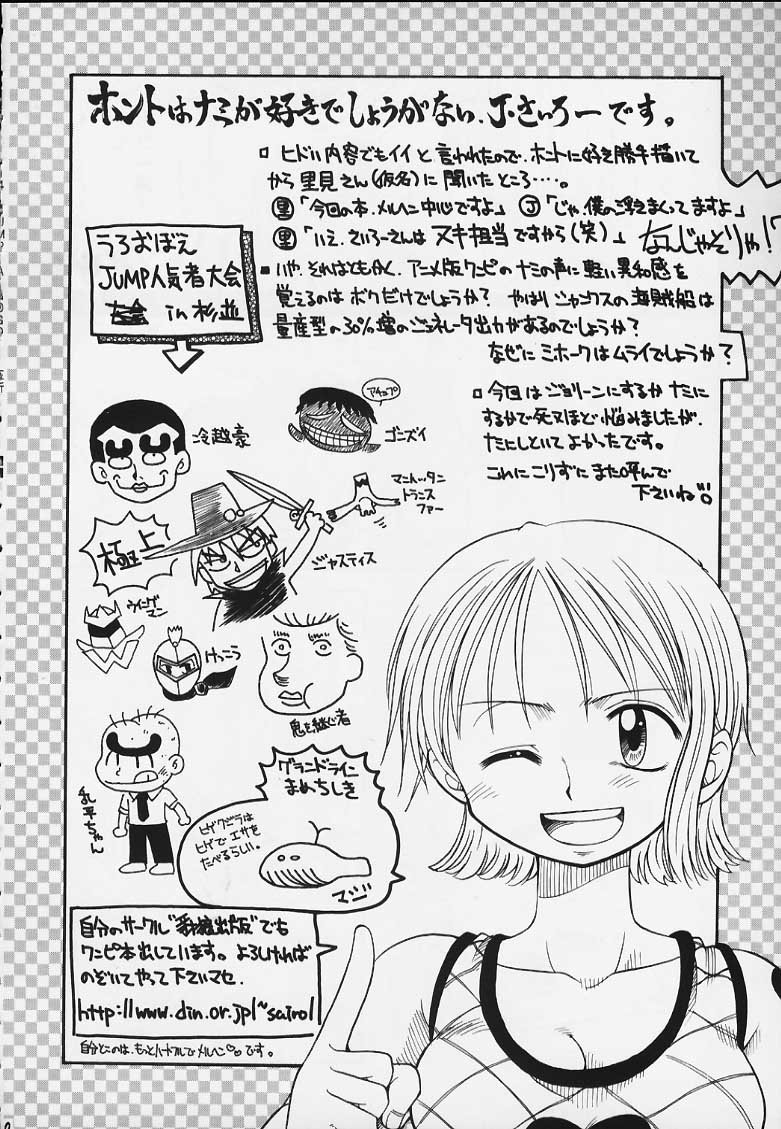 ホントはナミが好きでしょうがない、J・さいろーです。
□ ヒドい内容でもイイと言われたので、ホントに好き勝手描いて
から里見さん(仮名)に聞いたところ‥‥。
里「今回の本、メルヘン中心ですよ」 J「じゃ、僕の浮きまくってますよ」
里「いえ、さいろーさんはヌキ担当ですから(笑)」 なんじゃそりゃ!?
■ いや、それはともかく、アニメ版ワンピのナミの声に軽い異和感を
覚えるのはボクだけでしょうか? やはりシャンクスの海賊船は
量産型の30%増のジェネレータ出力があるのでしょうか?
なぜにミホークはムライでしょうか?
□ 今回はジョリーンにするかナミに
するかで死ぬほど悩みましたが、
たにしといてよかったです。
これにこりずにまた呼んで
下さいね
うろおぼえ
JUMP人気者大会
in 杉並
冷越豪
アチョプ
ゴンズイ
マンハッタン
トランス
ファー
極上
ジャスティス
ウイング
マン
けっこう
息を継ぐ者
乱平ちゃん
グランドライン
まめちしき
ヒゲクジラは
ヒゲでエサを
たべるらしい。
マジ
自分のサークル"番狼出版"でも
ワンピ本出しています。よろしければ
のぞいてやって下さいマセ.
http://www.din.or.jp/~sairo/
自分とこのは、もっとハートフルでメルヘン♡♡です。